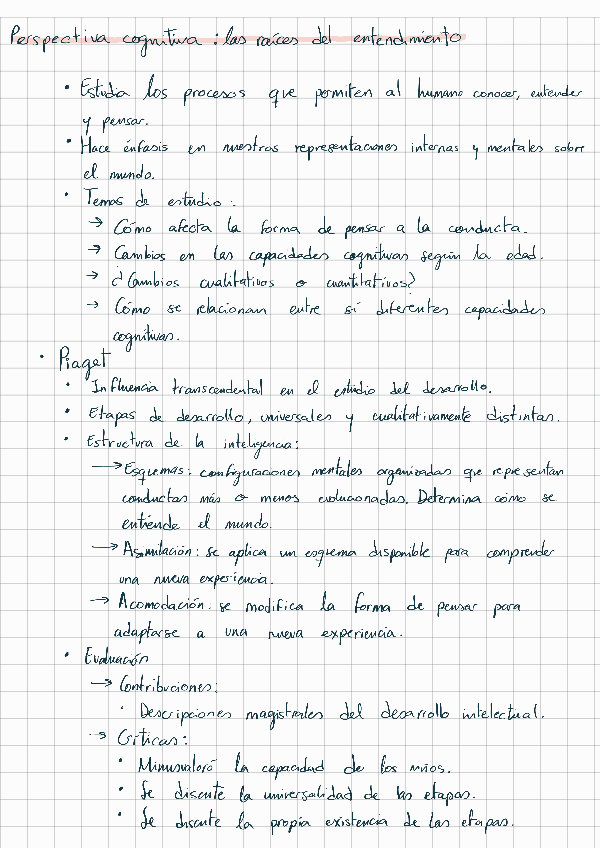 Perspectiva cognitiva: las raíces del entendimiento
• Estudia los procesos que permiten al humano conocer, entender
y pensar.
• Hace énfasis en nuestras representaciones internas y mentales sobre
el mundo.
• Temas de estudio:
→ Cómo afecta la forma de pensar a la conducta.
→ Cambios en las capacidades cognitivas según la edad.
→ ¿Cambios cualitativos o cuantitativos?
→ Cómo se relacionan entre sí diferentes capacidades
cognitivas.
• Piaget
• Influencia transcendental en el estudio del desarrollo.
• Etapas de desarrollo, universales y cualitativamente distintas.
• Estructura de la inteligencia:
→ Esquemas: configuraciones mentales organizadas que representan
conductas más o menos evolucionadas. Determina cómo se
entiende el mundo.
→ Asimilación: se aplica un esquema disponible para comprender
una nueva experiencia.
→ Acomodación. se modifica la forma de pensar para
adaptarse a una nueva experiencia.
• Evaluación
→ Contribuciones:
• Descripciones magistrales del desarrollo intelectual.
→ Críticas:
• Minusvaloró la capacidad de los niños.
• Se discute la universalidad de las etapas.
• Se discute la propia existencia de las etapas.